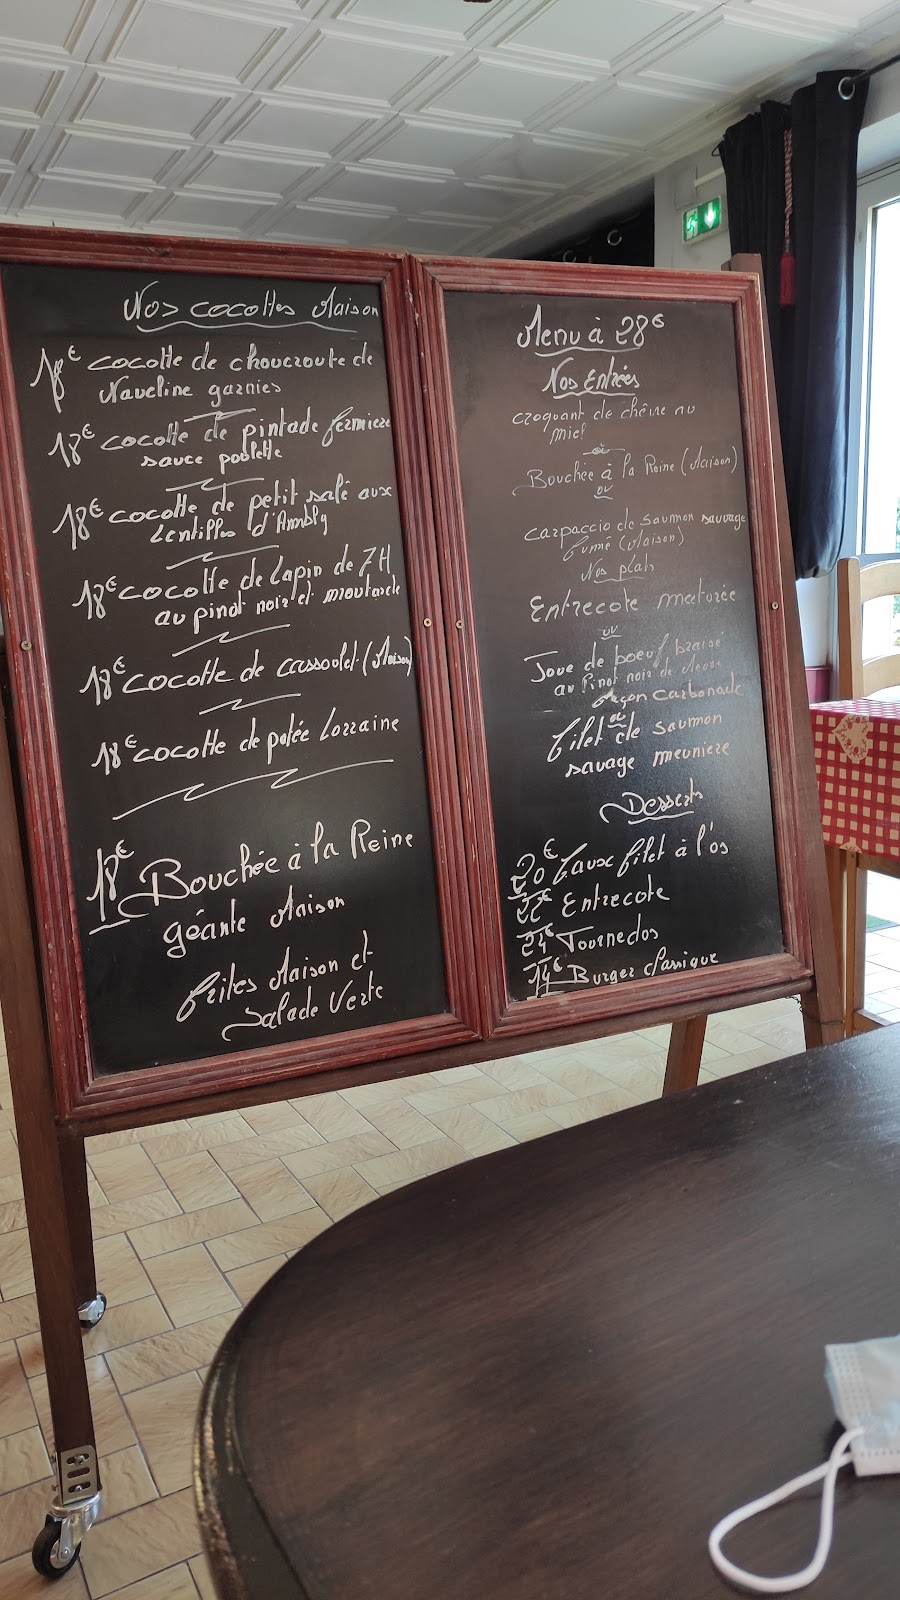 Nos cocottes Maison
18€ cocotte de choucroute de
Naveline garnies
18€ cocotte de pintade fermiere
sauce poulette
18€ cocotte de petit salé aux
Lentilles d'Ambly
18€ cocotte de lapin de 7H
au pinot noir et moutarde
18€ cocotte de cassoulet (Maison)
18€ cocotte de potée Lorraine
18€ Bouchée à la Reine
géante Maison
frites Maison et
Salade Verte
Menu à 28€
Nos Entrées
croquant de chèvre au
miel
ou
Bouchée à la Reine (Maison)
ou
carpaccio de saumon sauvage
fumé (Maison)
Nos plats
Entrecote maturée
ou
Joue de boeuf braisé
au Pinot noir de Meuse
façon carbonade
ou
filet de saumon
sauvage meuniere
Desserts
20€ faux filet à l'os
22€ Entrecote
24€ Tournedos
14€ Burger classique